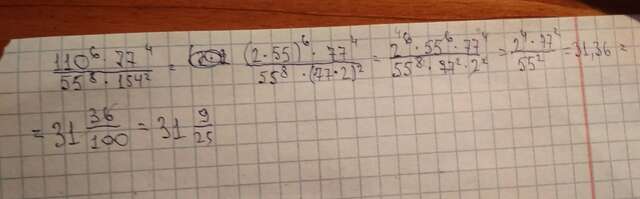 110⁶ · 77⁴ / 55⁸ · 154² = (2·55)⁶ · 77⁴ / 55⁸ · (77·2)² = 2⁶ · 55⁶ · 77⁴ / 55⁸ · 77² · 2² = 2⁴ · 77² / 55² = 31,36 =
= 31 36/100 = 31 9/25